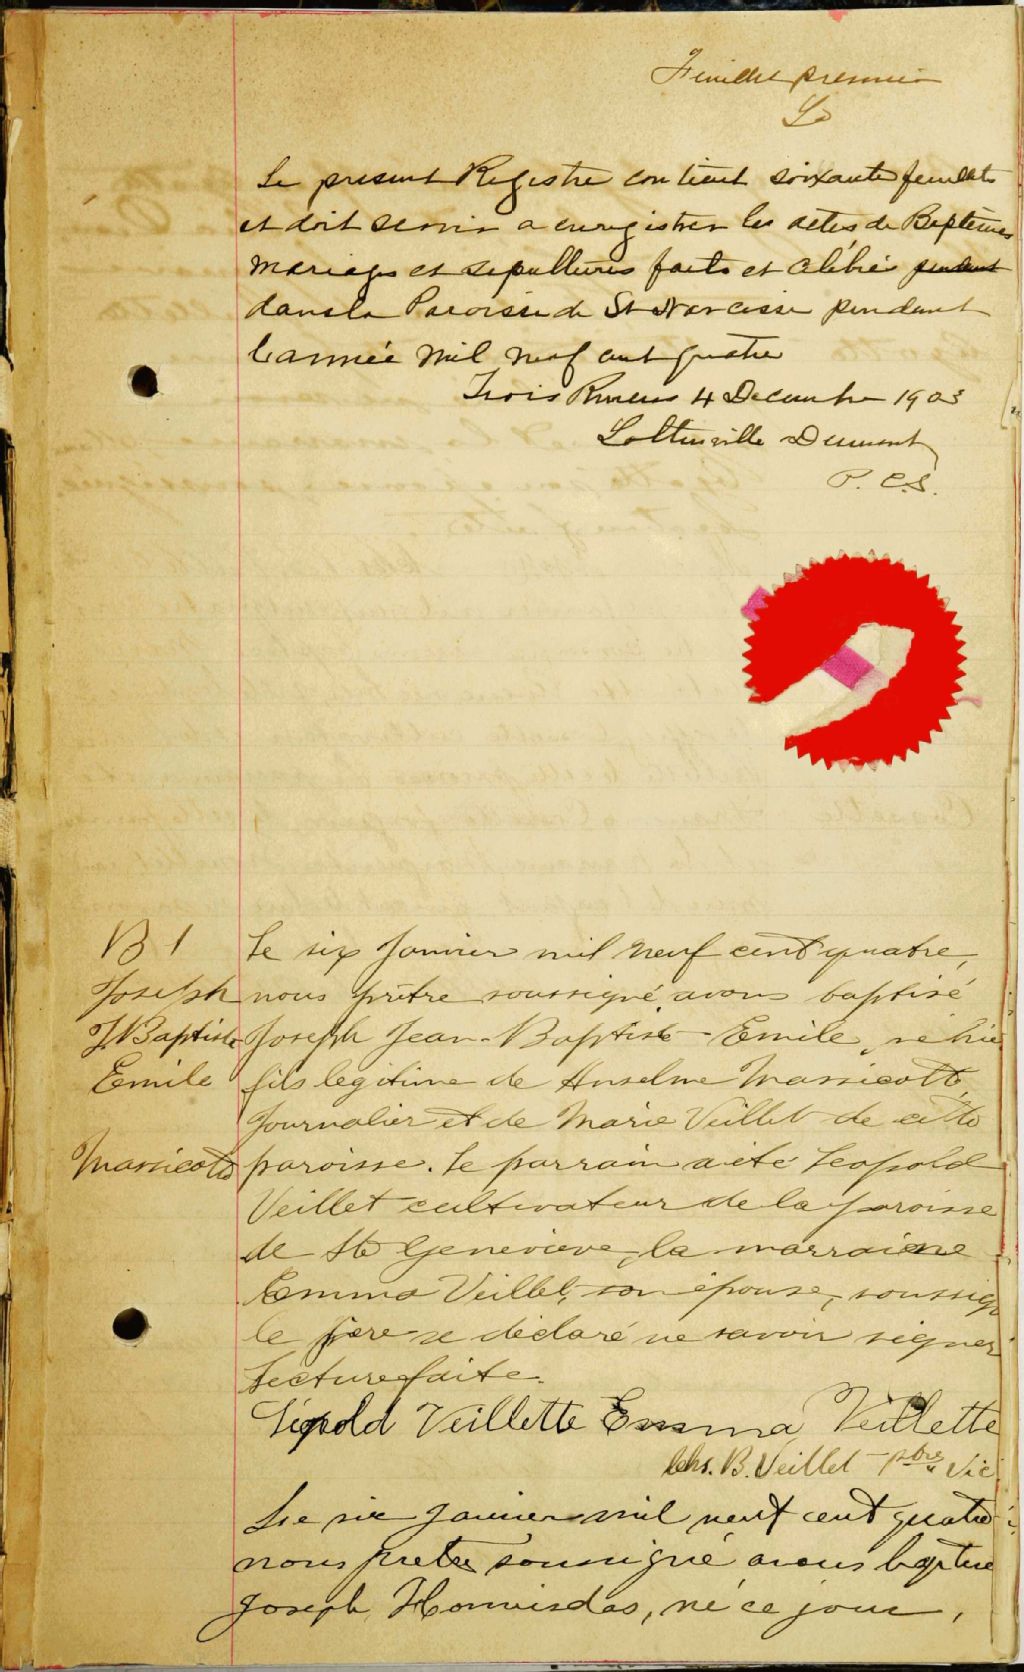 Feuillet premier
LD
Le present Registre contient soixante feuillets
et doit servir a enregistrer les actes de Baptèmes
mariages et sepultures faits et célébrés pendant
dans la Paroisse de St Narcisse pendant
l'année mil neuf cent quatre
Trois Rivieres 4 Decembre 1903
Lottinville Dumont
P. C. S.
B 1
Joseph
J. Baptiste
Emile
Massicotte
Le six Janvier mil neuf cent quatre,
nous prêtre soussigné avons baptisé
Joseph Jean-Baptiste Emile, né hier
fils legitime de Anselme Massicotte,
Journalier et de Marie Veillet de cette
paroisse. Le parrain a été Leopold
Veillet cultivateur de la paroisse
de Ste Genevieve, la marraine
Emma Veillet, son épouse, soussign
le père a déclaré ne savoir signer
Lecture faite.
Léopold Veillette Emma Veillette
Chs. B. Veillet ptre Vic
Le six Janvier mil neuf cent quatre
nous pretre soussigné avons baptisé
Joseph Hormisdas, né ce jour,